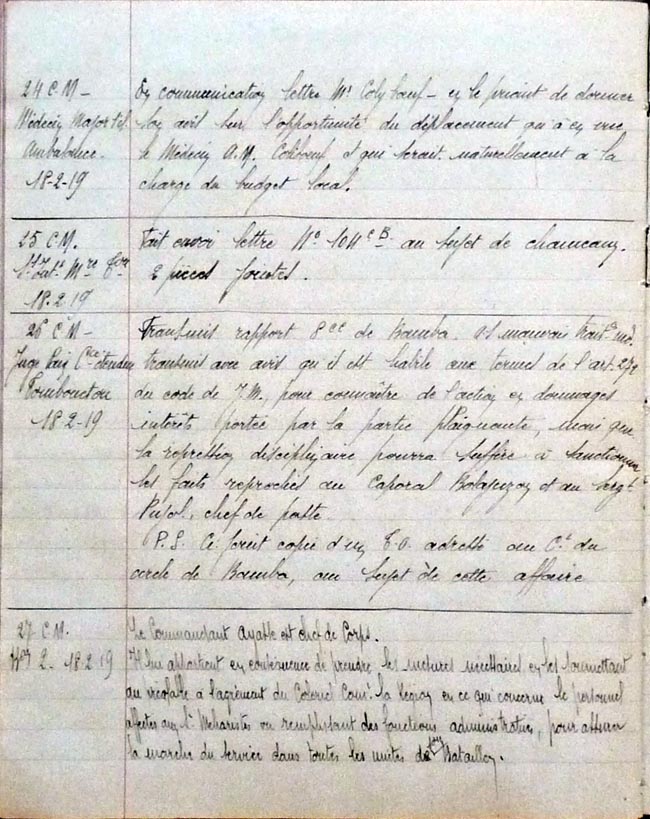 24 C.M - En communication lettre Mr Coleboeuf - en le priant de donner
Médecin Major Ch. son avis sur l'opportunité du déplacement qu'a en vue
Ambulance. le Médecin A.M. Coleboeuf et qui serait naturellement à la
18-2-19 charge du budget local.
25 C.M. Fait envoi lettre No 104 c B au sujet de chameaux.
2 pièces jointes.
18.2.19
26 C M - Transmis rapport 8e Cie de Bamba. mauvais
Juge Paix transmis avec avis qu'il est habile aux termes de l'art. 272
Tombouctou du code de J.M. pour connaître de l'action en dommages
18-2-19 intérêts portée par la partie plaignante, mais que
la répression disciplinaire pourra suffire à sanctionner
les faits reprochés au Caporal et au sergt
Pujol, chef de poste.
P.S. Ci joint copie d'un T.O. adressé au Ct du
cercle de Bamba, au sujet de cette affaire
27 C.M. Le Commandant Ayasse est chef de Corps.
2 - 18 2 19 Il lui appartient en conséquence de prendre les mesures nécessaires en les soumettant
au préalable à l'agrément du Colonel Comt la Région en ce qui concerne le personnel
affectés aux Méharistes ou remplissant des fonctions administratives, pour assurer
la marche du service dans toutes les unités du Bataillon.